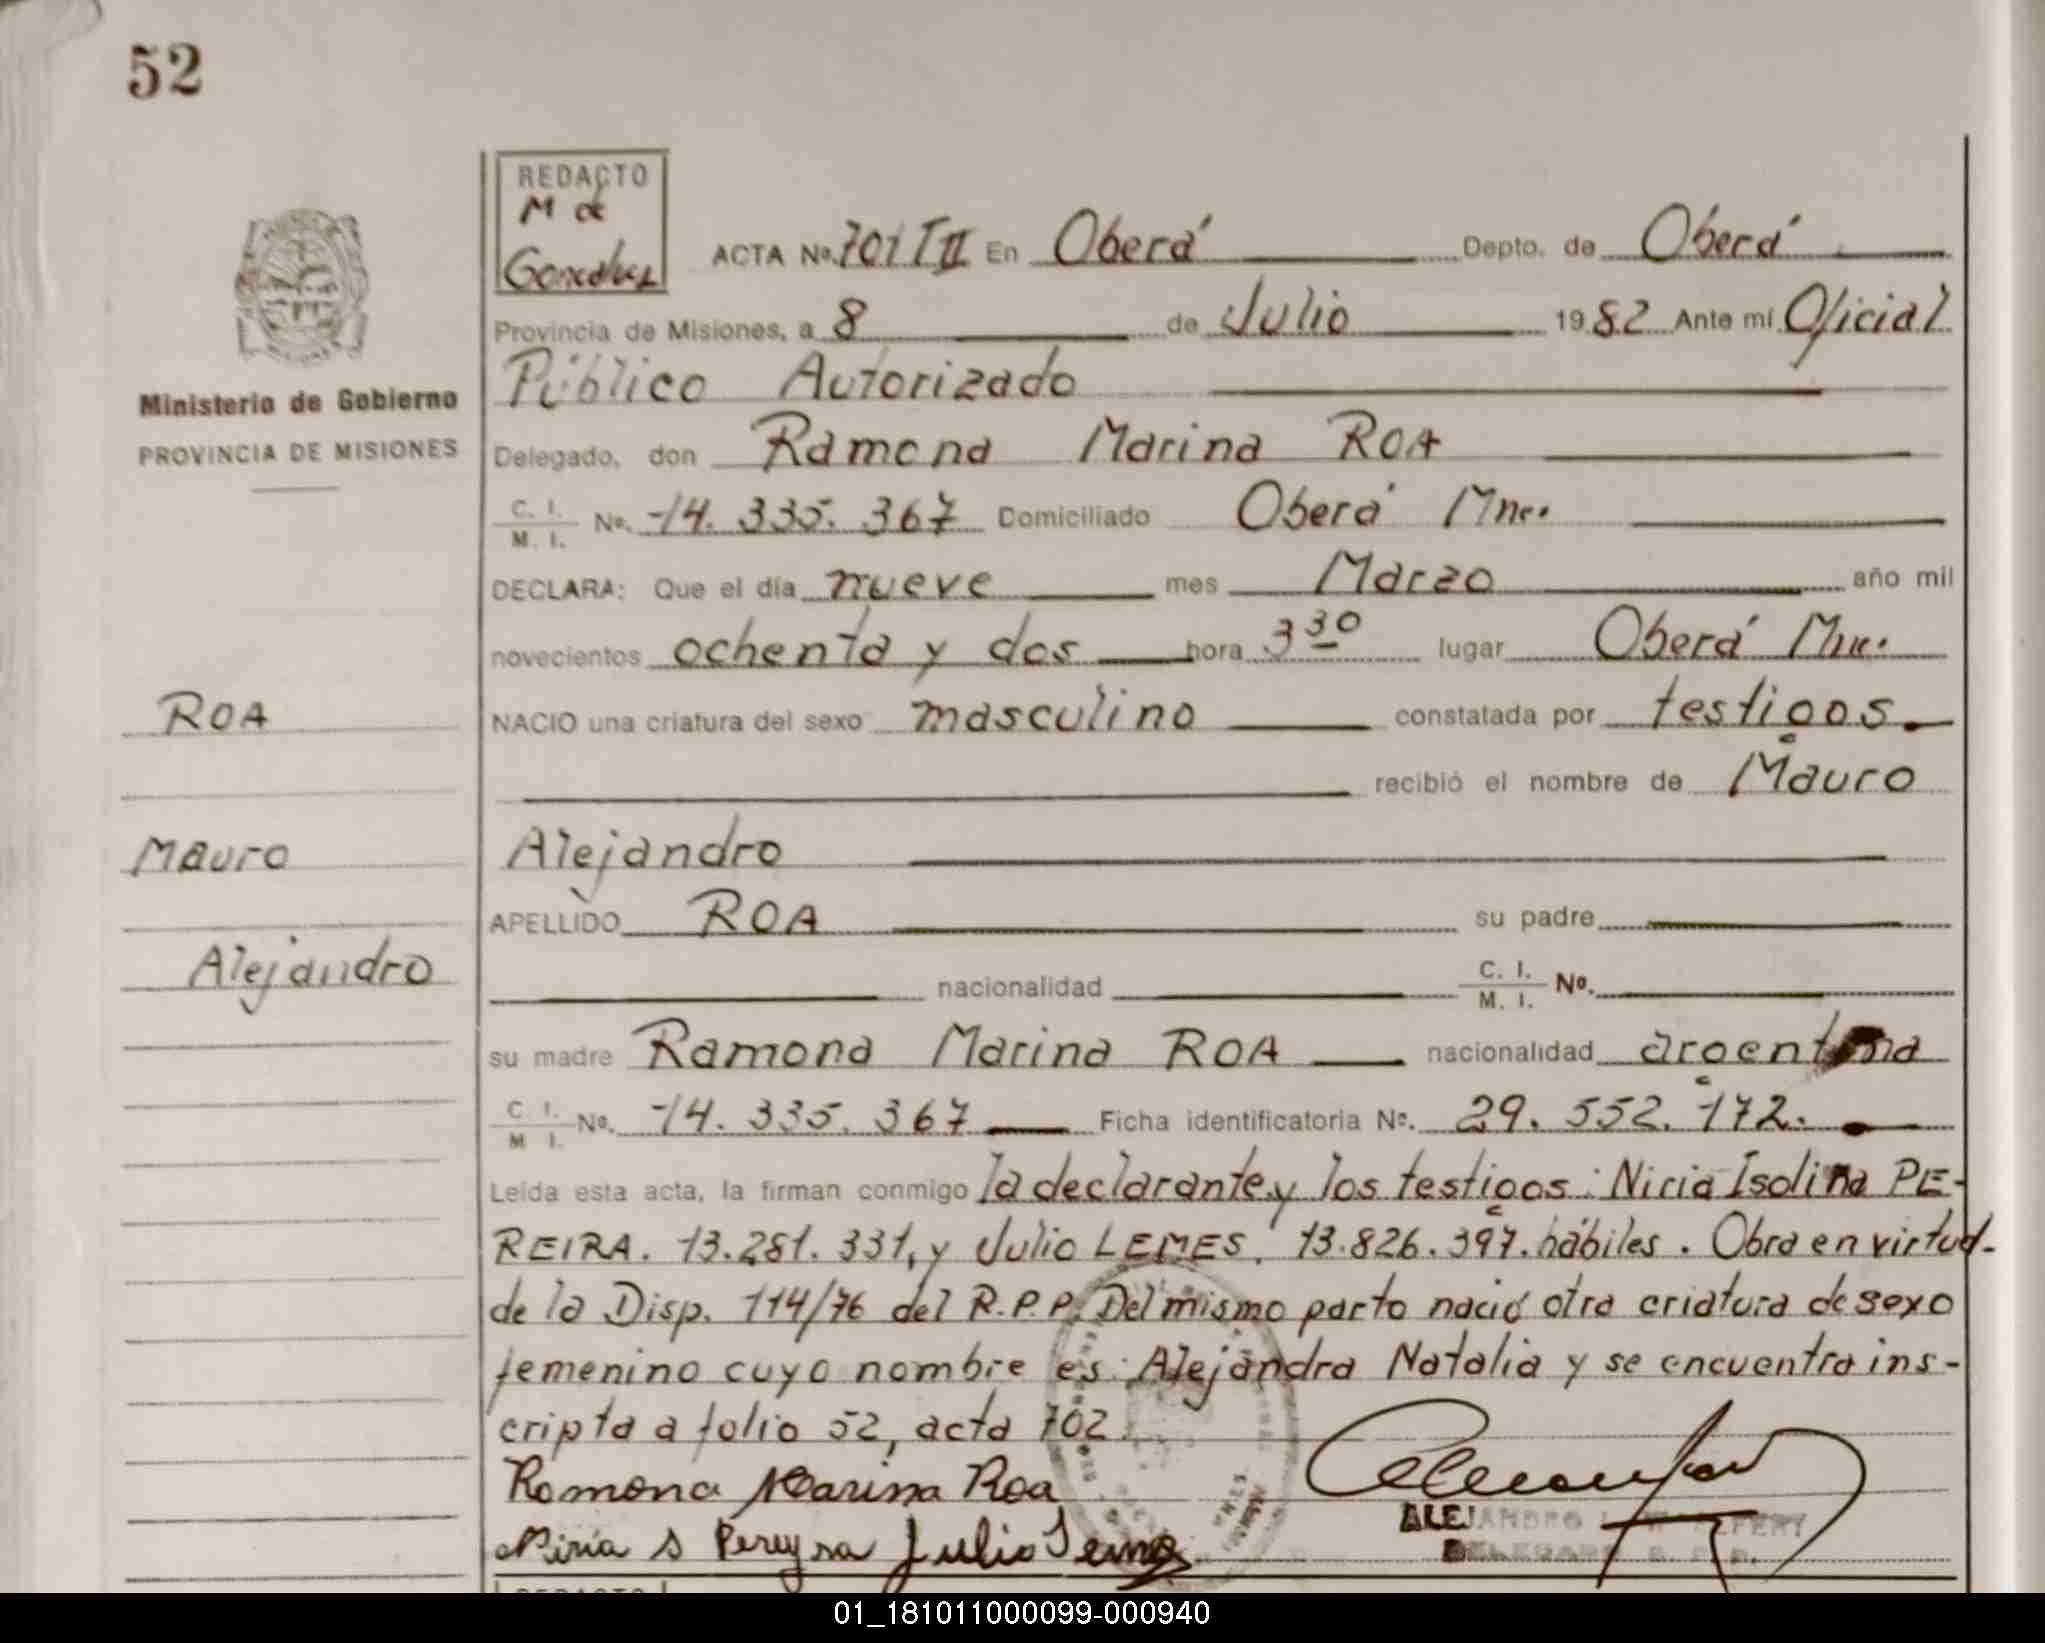 52
REDACTO
M de
Gonzalez
ACTA No. 701 T II En Oberá Depto. de Oberá
Provincia de Misiones, a 8 de Julio 1982 Ante mí Oficial
Público Autorizado
Ministerio de Gobierno
PROVINCIA DE MISIONES
Delegado, don Ramona Marina ROA
C. I.
M. I. No. 14.335.367 Domiciliado Oberá Mnes.
DECLARA: Que el día nueve mes Marzo año mil
novecientos ochenta y dos hora 3 30 lugar Oberá Mnes.
ROA
NACIO una criatura del sexo masculino constatada por testigos.
recibió el nombre de Mauro
Mauro
Alejandro
APELLIDO ROA su padre
Alejandro
nacionalidad C. I.
M. I. No.
su madre Ramona Marina ROA nacionalidad argentina
C. I.
M I. No. 14.335.367 Ficha identificatoria No. 29.552.172.
Leída esta acta, la firman conmigo la declarante y los testigos: Niria Isolina PE-
REIRA. 13.281.331, y Julio LEMES. 13.826.397. hábiles. Obra en virtud-
de la Disp. 114/76 del R.P.P. Del mismo parto nació otra criatura de sexo
femenino cuyo nombre es: Alejandra Natalia y se encuentra ins-
cripta a folio 52, acta 702.
Ramona Marina Roa
Niria S Pereyra Julio Lemes
ALEJANDRO
DELEGADO R. P. P.
REDACTO
01_181011000099-000940